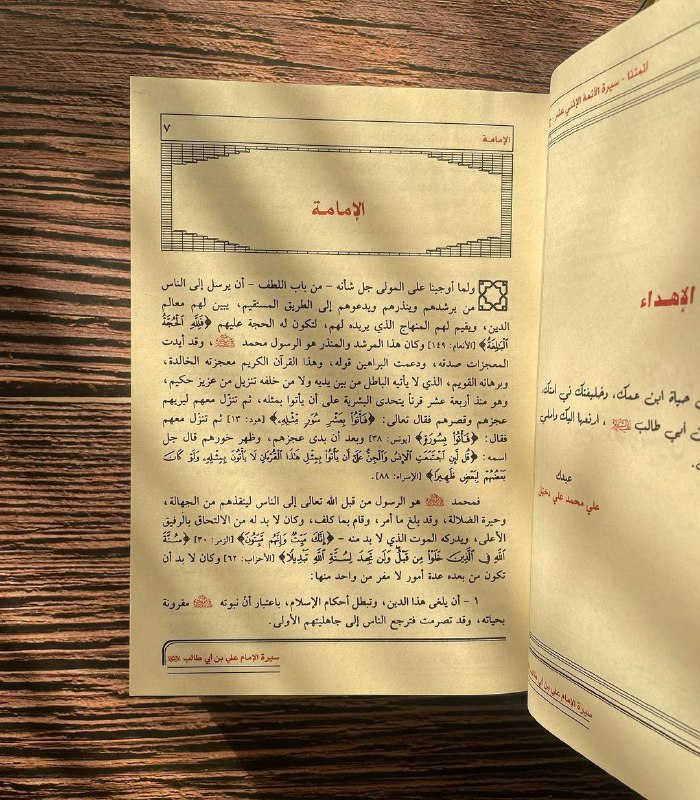 أئمتنا - سيرة الأئمة الإثني عشر
الإهداء
حياة ابن عمك، وخليفتك في امتك،
أبي طالب ، ارفعها اليك راجلي
عبدك
علي محمد علي دخيل
سيرة الإمام علي بن أبي طالب
الإمامة ٧
الإمامة
ولما أوجبنا على المولى جل شأنه - من باب اللطف - أن يرسل إلى الناس
من يرشدهم وينذرهم ويدعوهم إلى الطريق المستقيم، يبين لهم معالم
الدين، ويقيم لهم المنهاج الذي يريده لهم، لتكون له الحجة عليهم ﴿فَلِلَّهِ الْحُجَّةُ
الْبَالِغَةُ﴾ [الأنعام: ١٤٩] وكان هذا المرشد والمنذر هو الرسول محمد ﷺ، وقد أيدت
المعجزات صدقه، ودعمت البراهين قوله، وهذا القرآن الكريم معجزته الخالدة،
وبرهانه القويم، الذي لا يأتيه الباطل من بين يديه ولا من خلفه تنزيل من عزيز حكيم،
وهو منذ أربعة عشر قرناً يتحدى البشرية على أن يأتوا بمثله، ثم تنزّل معهم ليريهم
عجزهم وقصرهم فقال تعالى: ﴿فَأْتُوا بِعَشْرِ سُوَرٍ مِّثْلِهِ﴾ [هود: ١٣] ثم تنزل معهم
فقال: ﴿فَأْتُوا بِسُورَةٍ﴾ [يونس: ٣٨] وبعد أن بدى عجزهم، وظهر خورهم قال جل
اسمه: ﴿قُل لَّئِنِ اجْتَمَعَتِ الْإِنسُ وَالْجِنُّ عَلَى أَن يَأْتُوا بِمِثْلِ هَذَا الْقُرْءَانِ لَا يَأْتُونَ بِمِثْلِهِ وَلَوْ كَانَ
بَعْضُهُمْ لِبَعْضٍ ظَهِيرًا﴾ [الإسراء: ٨٨].
فمحمد ﷺ هو الرسول من قبل الله تعالى إلى الناس لينقذهم من الجهالة،
وحيرة الضلالة، وقد بلغ ما أمر، وقام بما كلف، وكان لا بد له من الالتحاق بالرفيق
الأعلى، ويدركه الموت الذي لا بد منه - ﴿إِنَّكَ مَيِّتٌ وَإِنَّهُم مَّيِّتُونَ﴾ [الزمر: ٣٠] ﴿سُنَّةَ
اللَّهِ فِي الَّذِينَ خَلَوْا مِن قَبْلُ وَلَن تَجِدَ لِسُنَّةِ اللَّهِ تَبْدِيلًا﴾ [الأحزاب: ٦٢] وكان لا بد أن
تكون من بعده عدة أمور لا مفر من واحد منها:
١ - أن يلغى هذا الدين، وتبطل أحكام الإسلام، باعتبار أنّ نبوته ﷺ مقرونة
بحياته، وقد تصرمت فترجع الناس إلى جاهليتهم الأولى.
سيرة الإمام علي بن أبي طالب